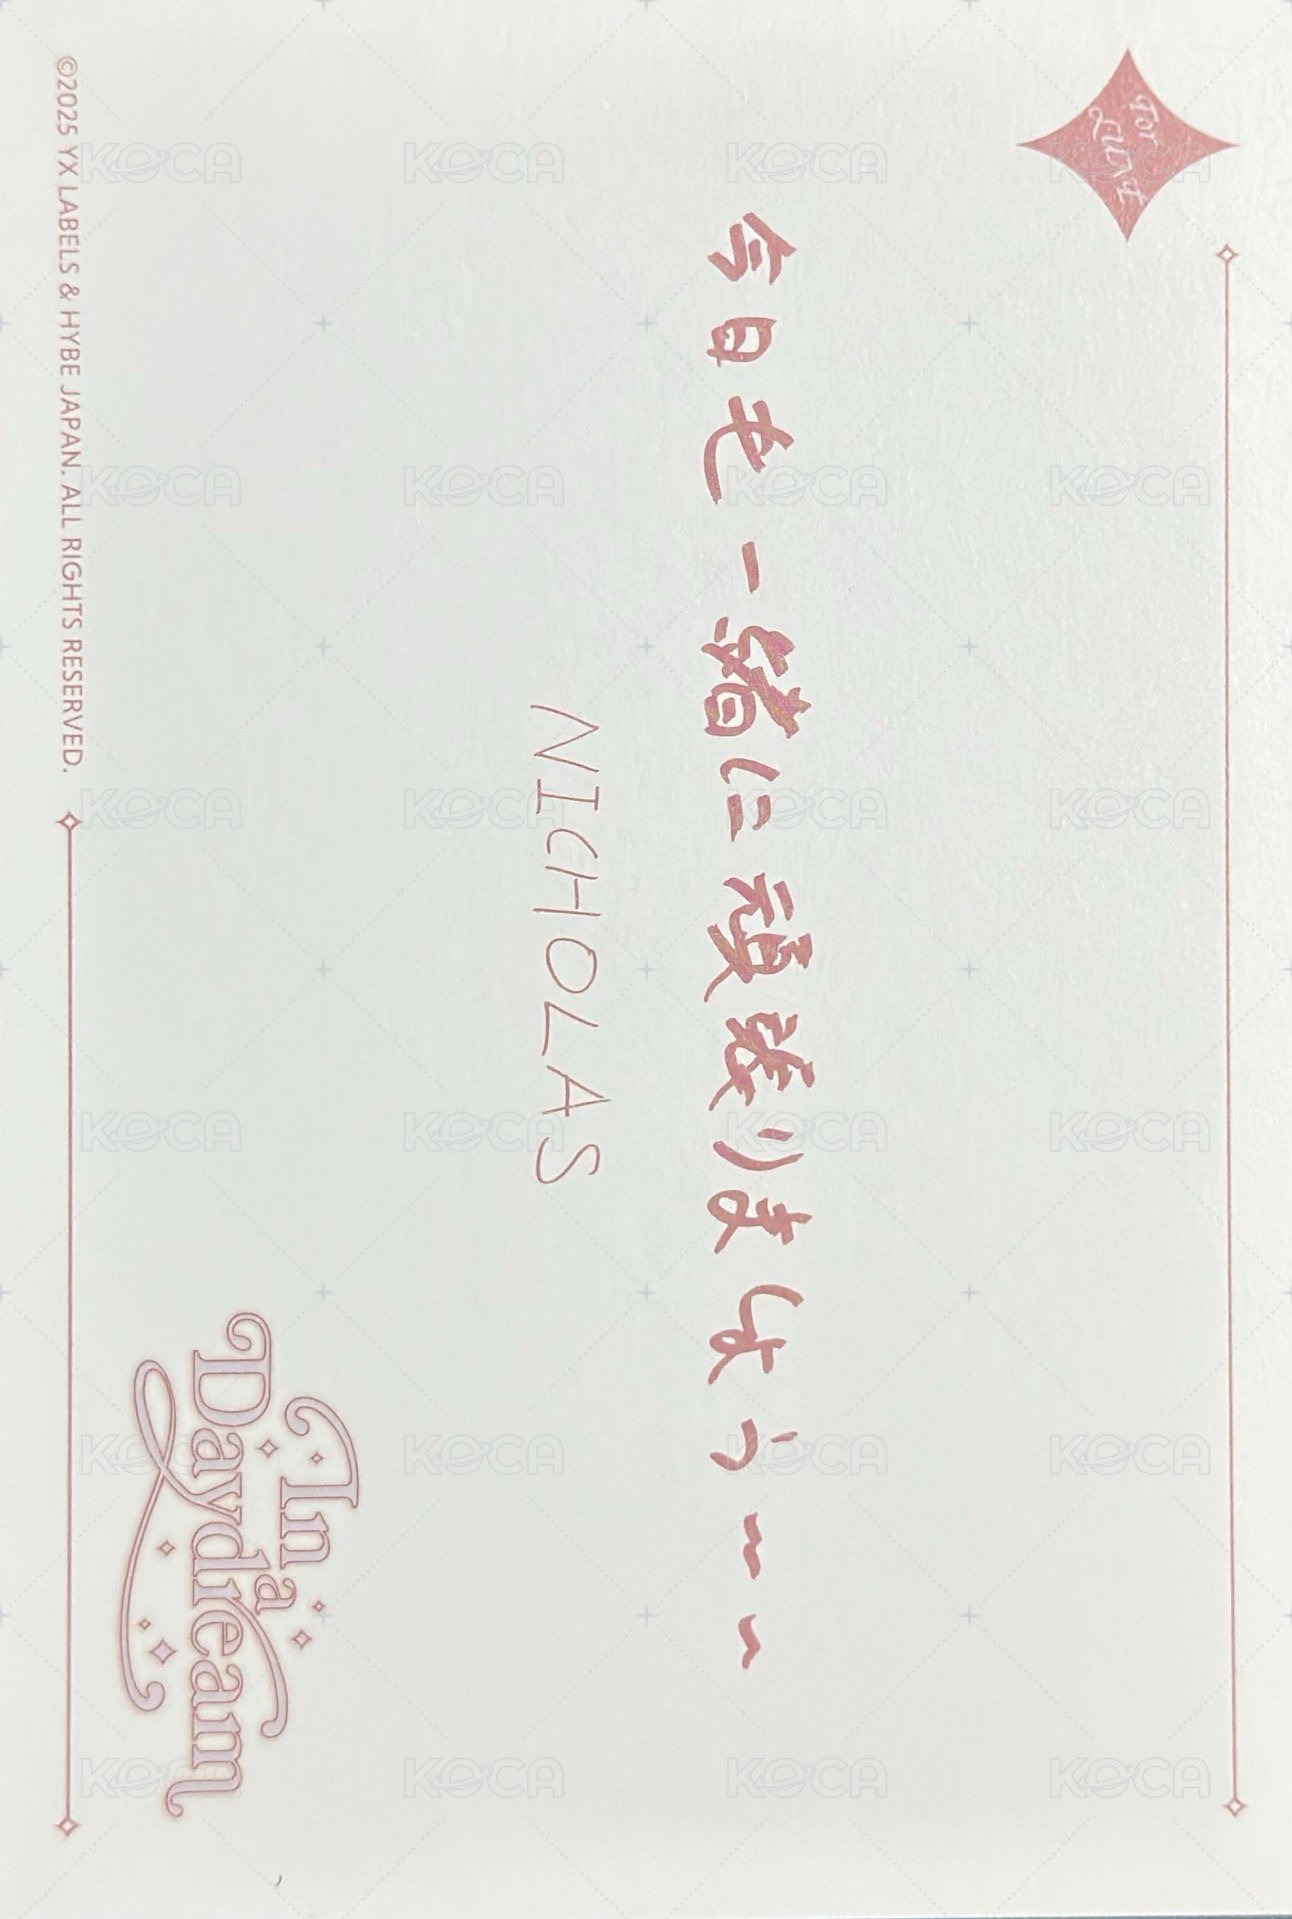 For
LUNÉ
今日も一緒に頑張りましょう~~
NICHOLAS
In
a
Daydream
©2025 YX LABELS & HYBE JAPAN. ALL RIGHTS RESERVED.
KOCA